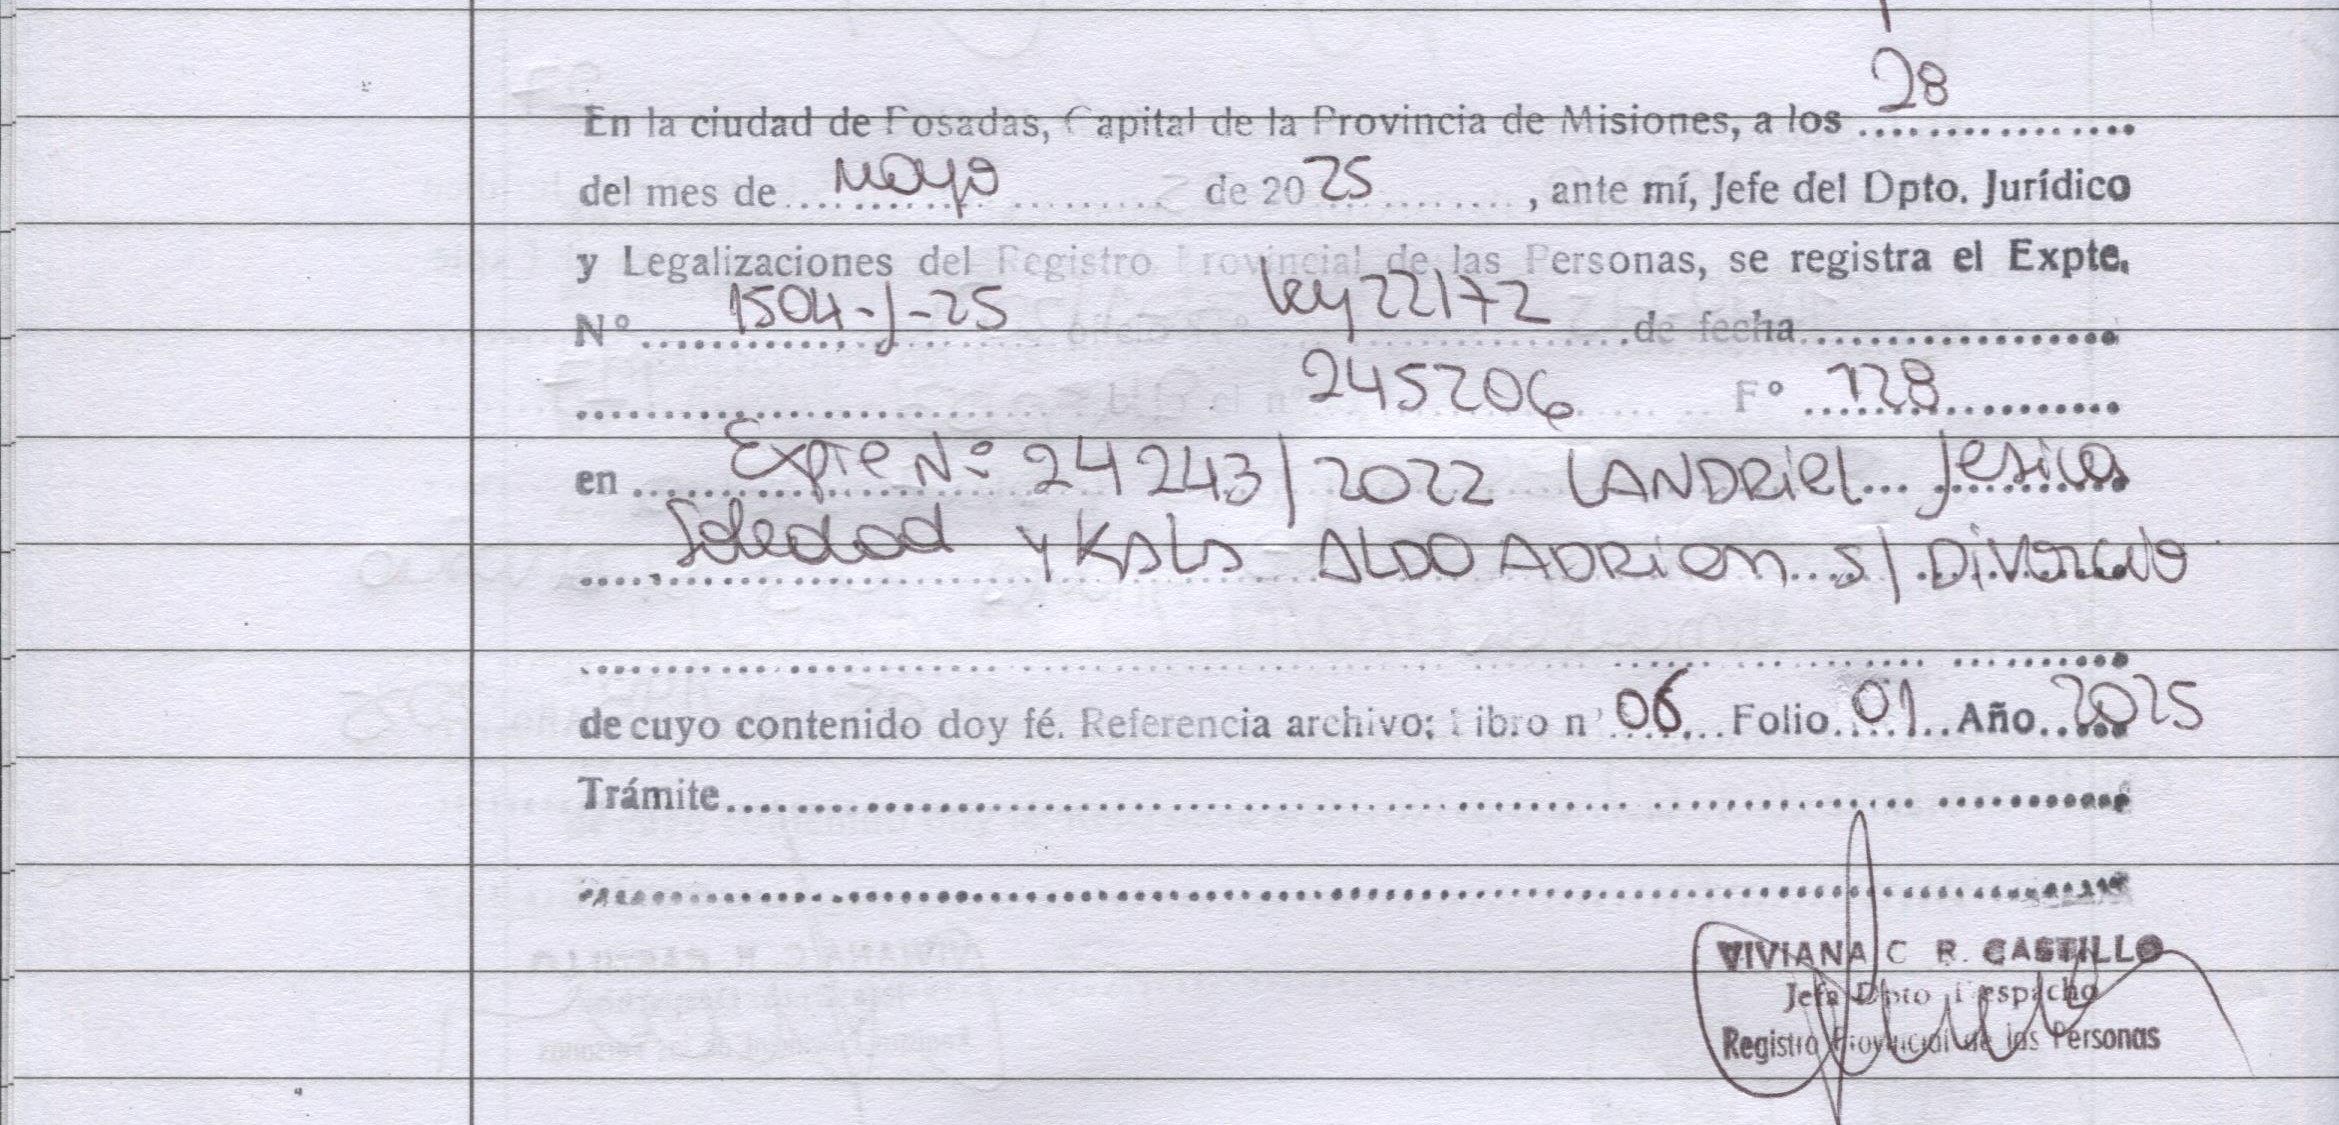 28
En la ciudad de Posadas, Capital de la Provincia de Misiones, a los ................
del mes de ..... mayo ..... de 20 25 ..... , ante mí, Jefe del Dpto. Jurídico
y Legalizaciones del Registro Provincial de las Personas, se registra el Expte.
N° ..... 1504-J-25 ley 22172 ..... de fecha ..................
..... 245206 F° 128 .....
en ..... Expte N° 24243/2022 LANDRiEL Jesica
Soledad y KALS ALDO ADRian s/ Divorcio
..........
de cuyo contenido doy fé. Referencia archivo: Libro n° 06 Folio 01 Año 2025
Trámite ..........
..........
VIVIANA C R. CASTILLO
Jefa Dpto Despacho
Registro Provincial de las Personas